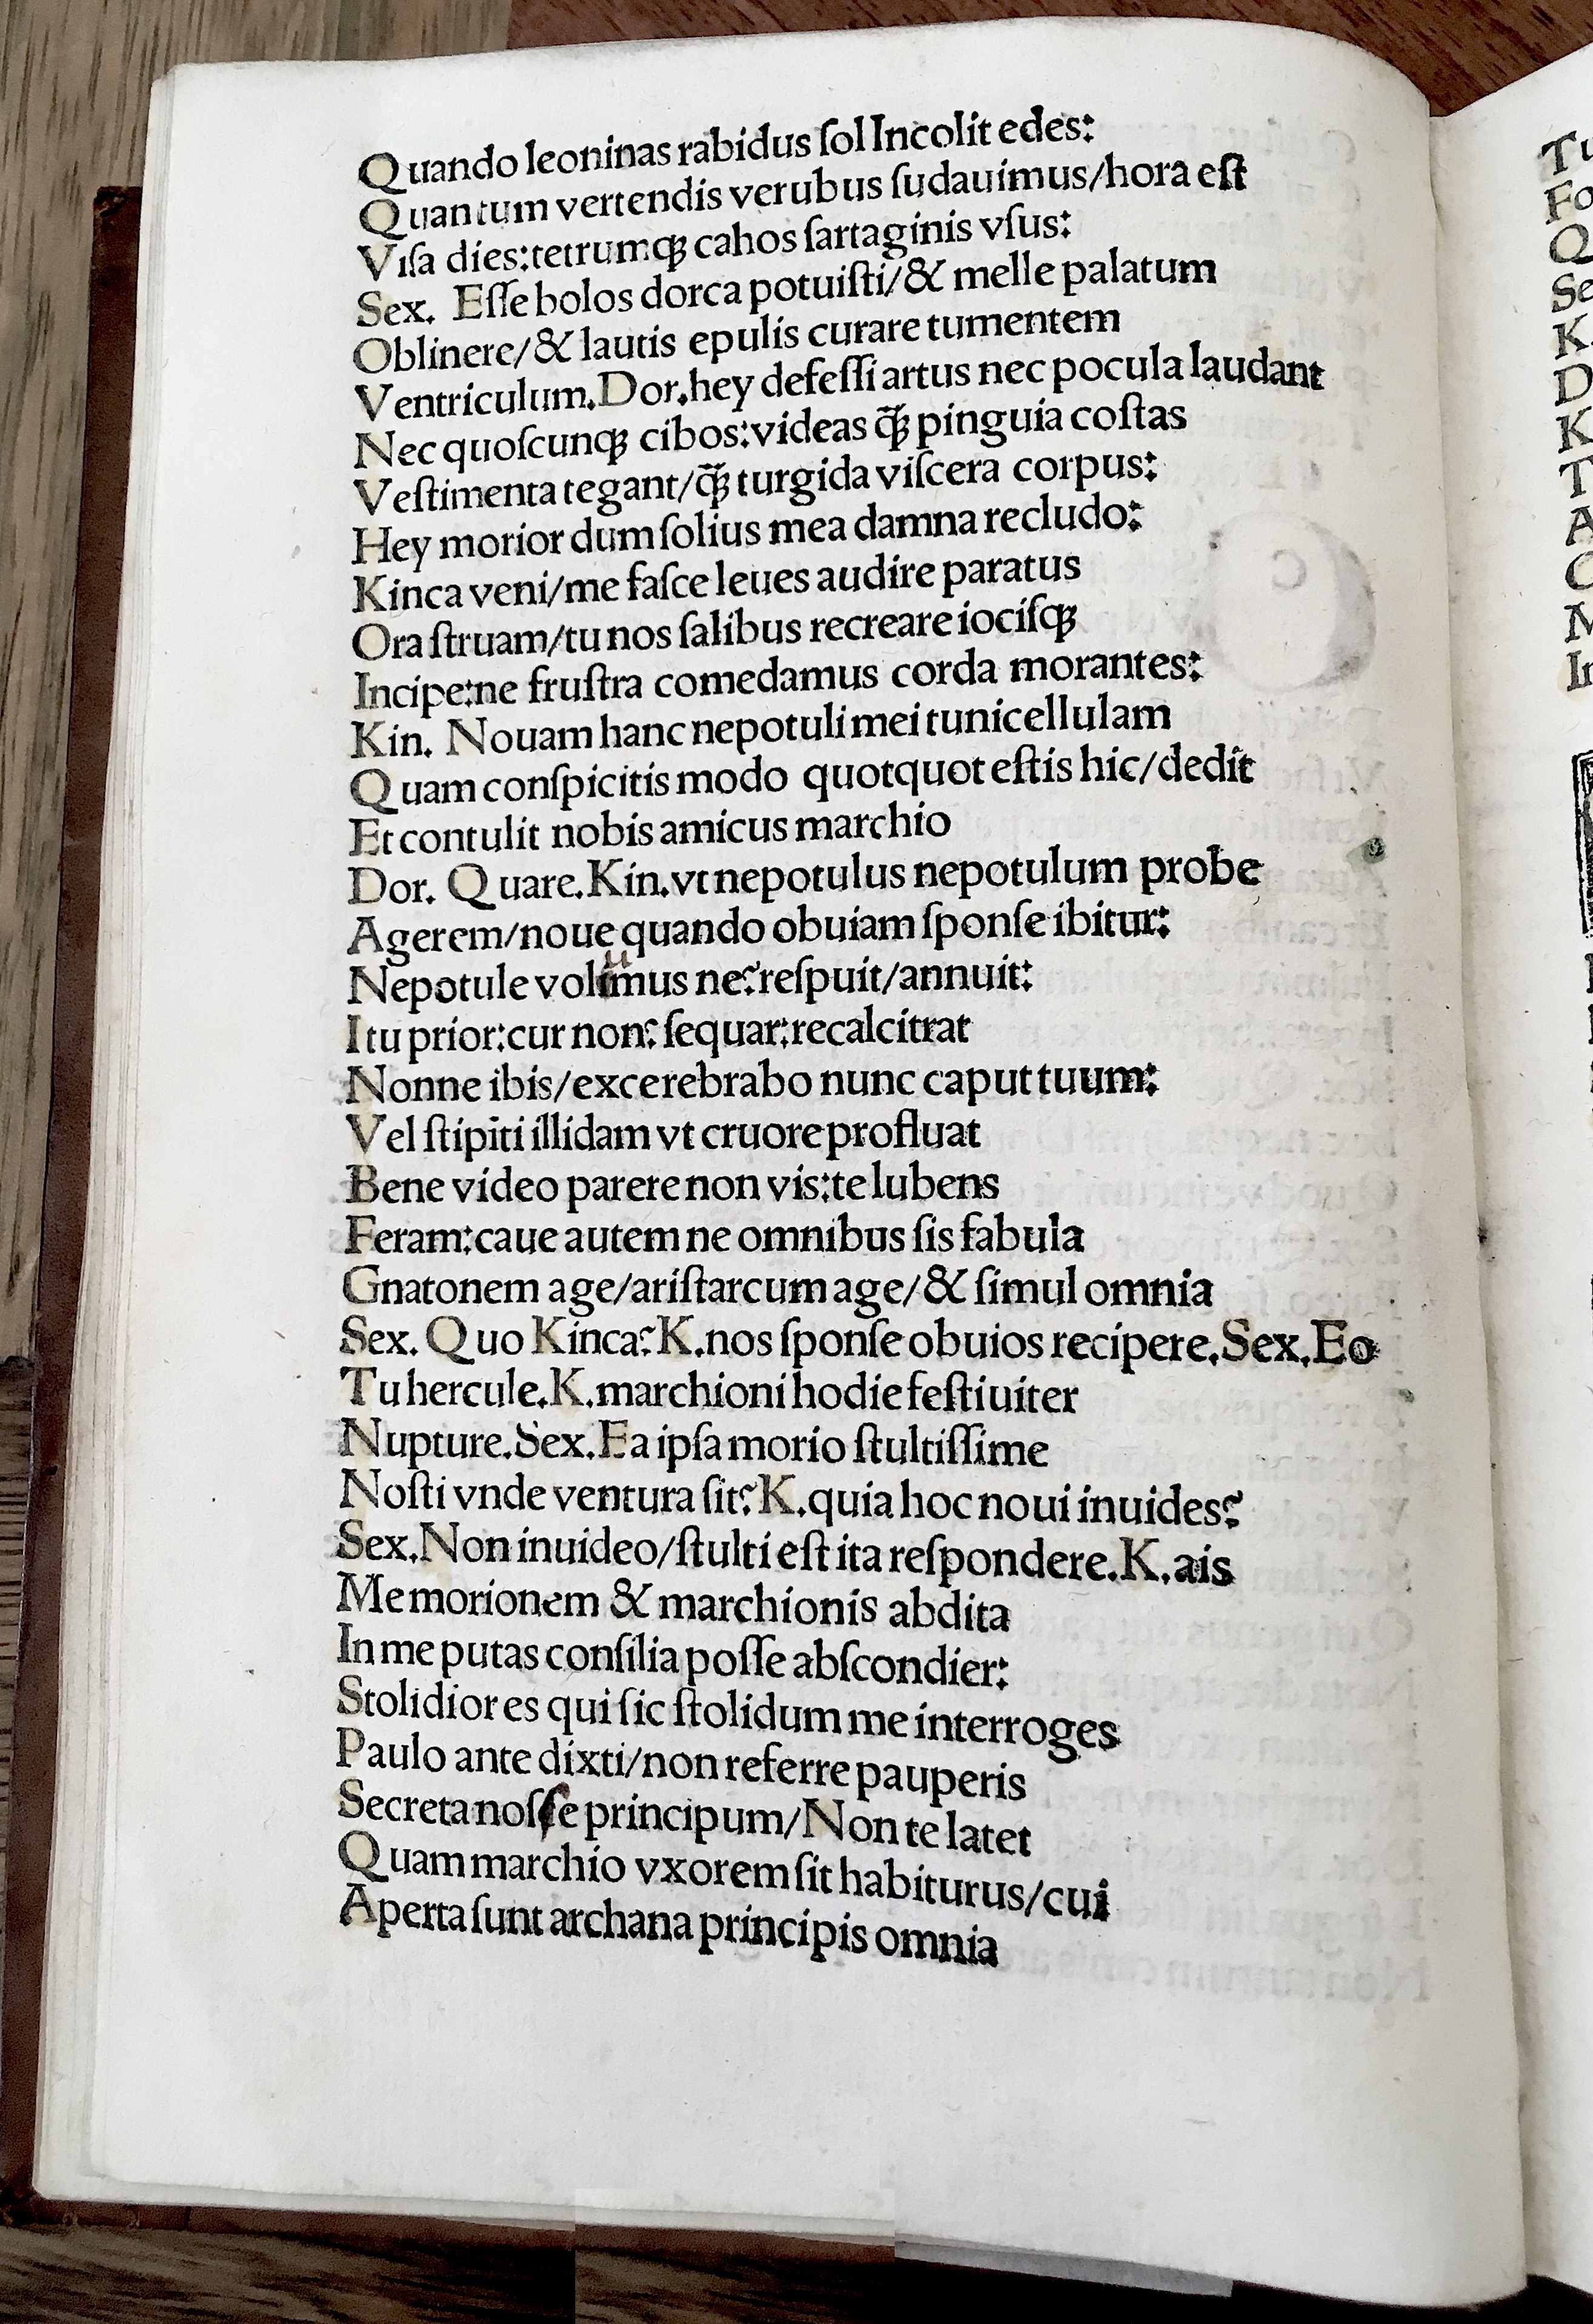 Quando leoninas rabidus ſol Incolit edes:
Quantum vertendis verubus ſudauimus/hora eſt
Viſa dies:tetrumqꝫ cahos ſartaginis vſus:
Sex. Eſſe bolos dorca potuiſti/& melle palatum
Oblinere/& lautis epulis curare tumentem
Ventriculum.Dor.hey defeſſi artus nec pocula laudant
Nec quoſcunqꝫ cibos:videas q̄ꝫ pinguia coſtas
Veſtimenta tegant/q̄ꝫ turgida viſcera corpus:
Hey morior dum ſolius mea damna recludo:
Kinca veni/me faſce leues audire paratus
Ora ſtruam/tu nos ſalibus recreare iociſqꝫ
Incipe:ne fruſtra comedamus corda morantes:
Kin. Nouam hanc nepotuli mei tunicellulam
Quam conſpicitis modo quotquot eſtis hic/dedit
Et contulit nobis amicus marchio
Dor. Quare.Kin.vt nepotulus nepotulum probe
Agerem/noue quando obuiam ſponſe ibitur:
Nepotule volumus ne?reſpuit/annuit:
I tu prior:cur non? ſequar:recalcitrat
Nonne ibis/excerebrabo nunc caput tuum:
Vel ſtipiti illidam vt cruore profluat
Bene video parere non vis:te lubens
Feram:caue autem ne omnibus ſis fabula
Gnatonem age/ariſtarcum age/& ſimul omnia
Sex. Quo Kinca?K.nos ſponſe obuios recipere.Sex.Eo
Tu hercule.K.marchioni hodie feſtiuiter
Nupture.Sex.Ea ipſa morio ſtultiſſime
Noſti vnde ventura ſit?K.quia hoc noui inuides?
Sex.Non inuideo/ſtulti eſt ita reſpondere.K.ais
Me morionem & marchionis abdita
In me putas conſilia poſſe abſcondier:
Stolidior es qui ſic ſtolidum me interroges
Paulo ante dixti/non referre pauperis
Secreta noſſe principum/Non te latet
Quam marchio vxorem ſit habiturus/cui
Aperta ſunt archana principis omnia